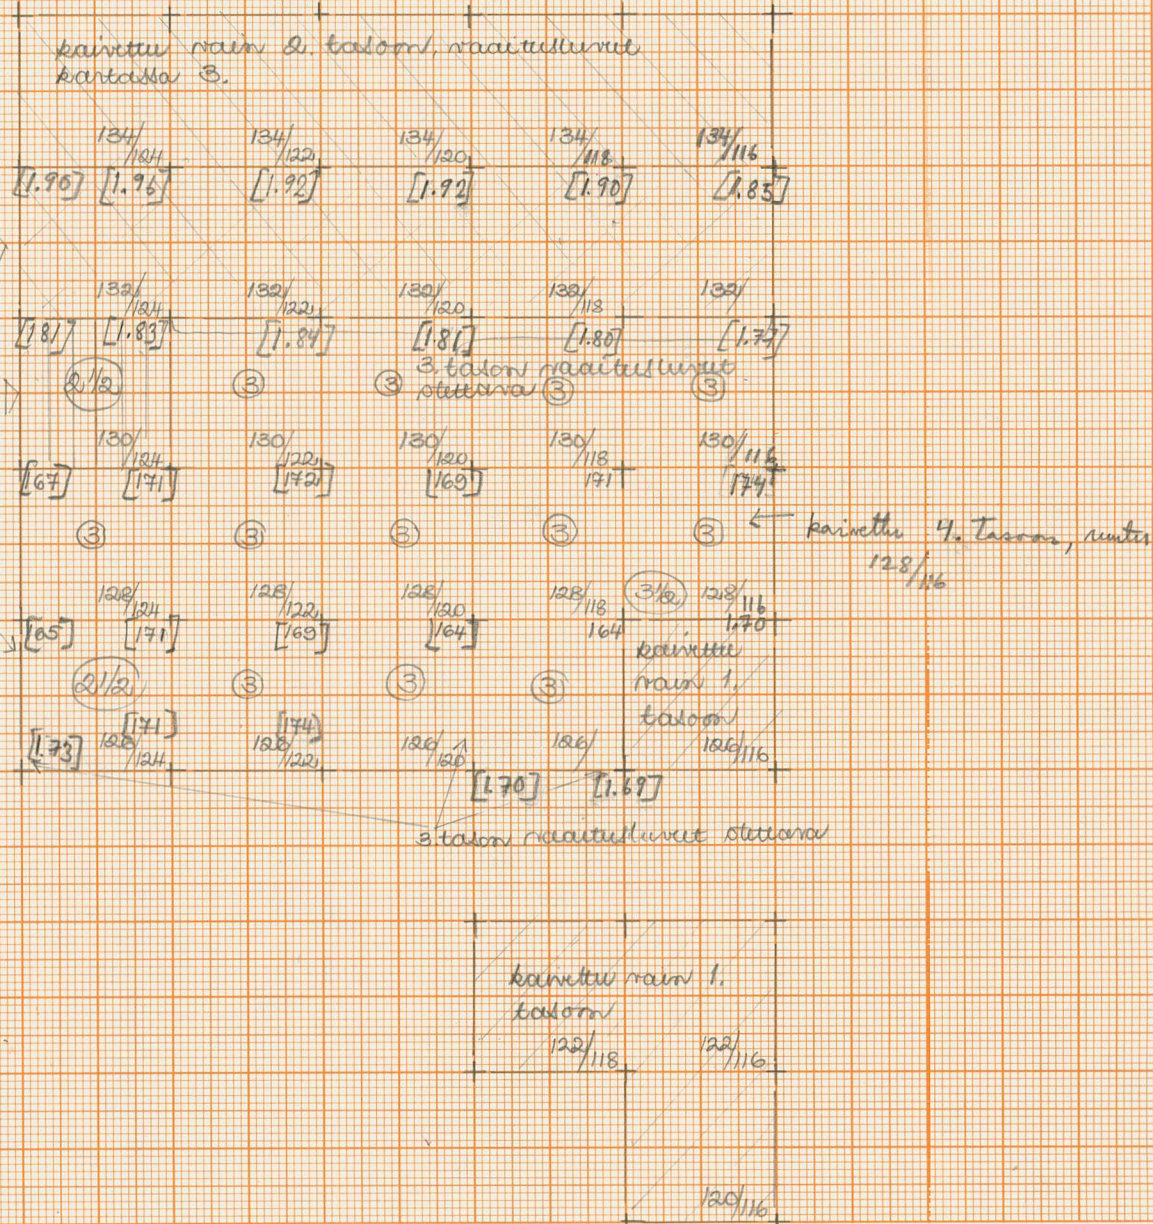 kaivettu vain 2. tasoon, vaaitusluvut
kartassa 3.
134/124 134/122 134/120 134/118 134/116
[1.96] [1.92] [1.92] [1.90] [1.85]
132/124 132/122 132/120 132/118 132/
[181] [1.83] [1.84] [1.81] [1.80] [1.77]
3. tason vaaitusluvut
2 1/2 3 3 otettava 3 3
130/124 130/122 130/120 130/118 130/116
[67] [171] [172] [169] 171 [174]
3 3 3 3 3 ← kaivettu 4. Tasoon,
128/116
128/124 128/122 128/120 128/118 3 1/2 128/116
[65] [171] [169] [164] 164 1.70
kaivettu
vain 1.
tasoon
2 1/2 3 3 3
[171] [174]
[1.73] 126/124 126/122 126/120 126/ 126/116
[1.70] [1.69]
3. tason vaaitusluvut otettava
kaivettu vain 1.
tasoon
122/118 122/116
120/116